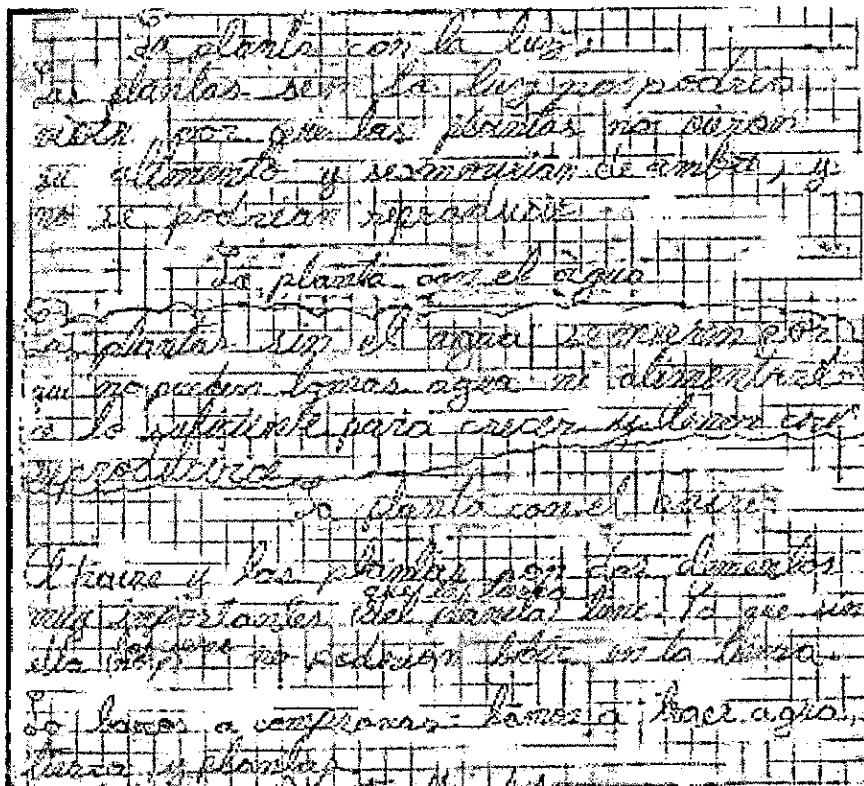 La planta con la luz.
Las plantas sin la luz no podrian
vivir por que las plantas no
su alimento y se murian de ambre, y
no se podrian reproducir
La planta con el agua
Las plantas sin el agua se mueren por
que no pueden tomar agua ni alimentarse
lo suficiente para crecer y
reproducirse
La planta con el haire
El haire y las plantas son dos elementos
muy importantes del planeta Ya que sin
ella no poderian en la tierra
Lo bamos a comprovar bamos a hacer agua,
tierra y plantas